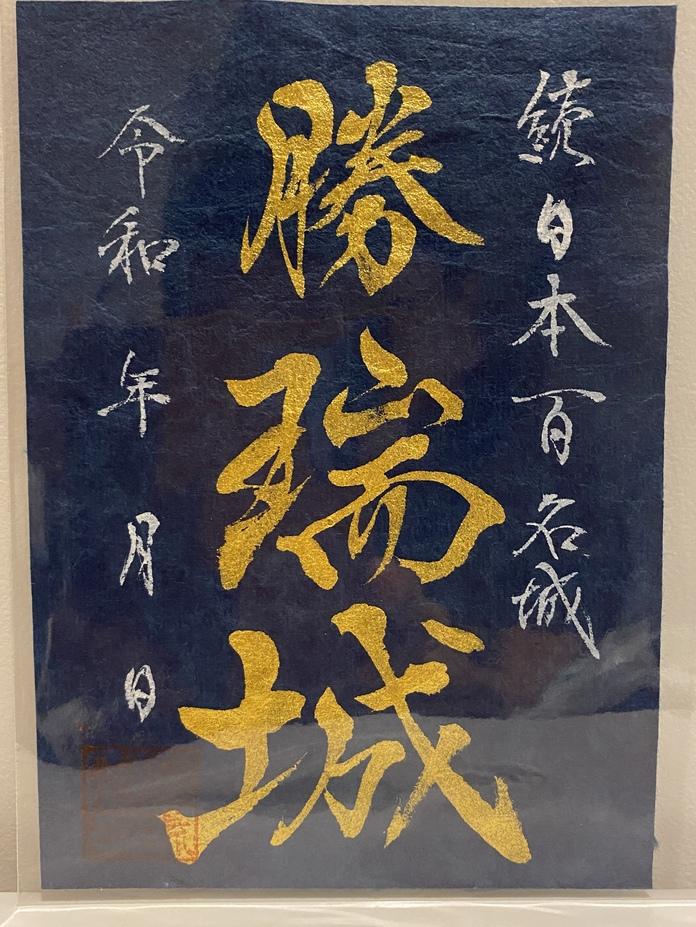 続日本百名城
勝瑞城
令和 年 月 日